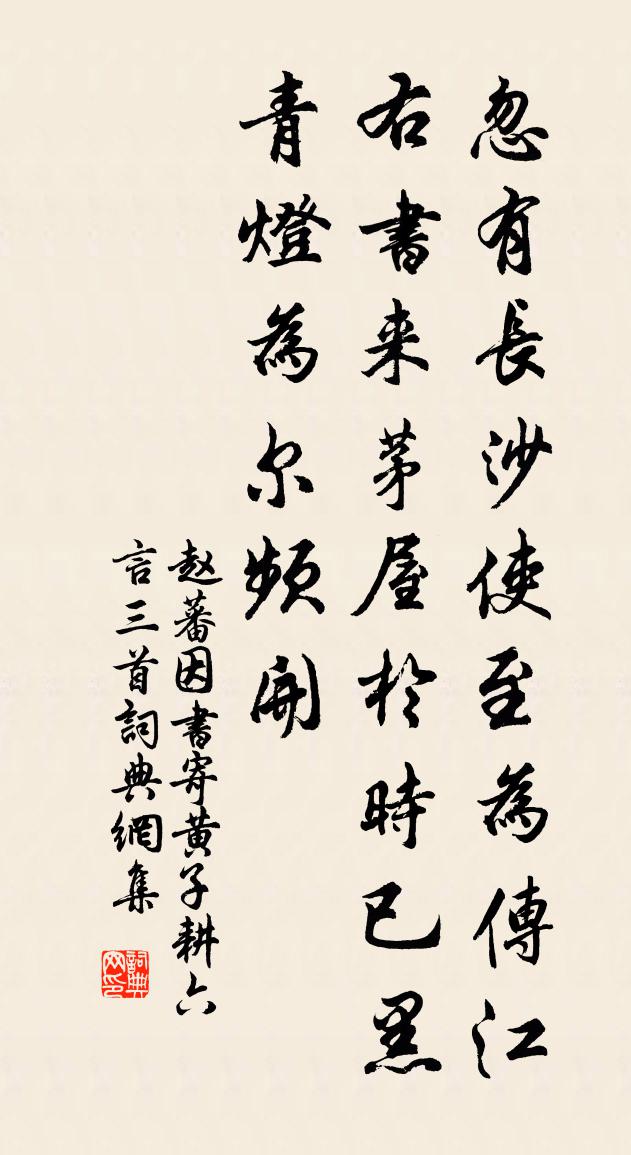 忽有長沙使至為傳江
右書来茅屋於時已黑
青燈為尔頻開
赵蕃因書寄黄子耕六
言三首詞典網集
詞典網印